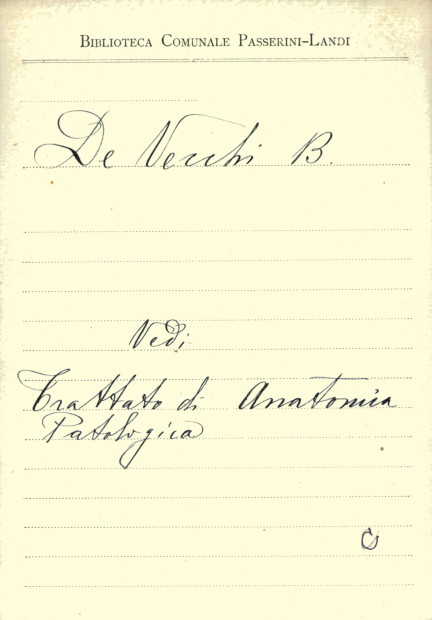 BIBLIOTECA COMUNALE PASSERINI-LANDI
De Vecchi B.
Vedi
Trattato di Anatomia
Patologica